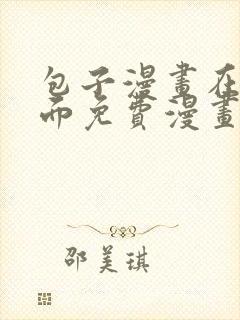 包子漫畫在
而免費漫畫
邵美琪